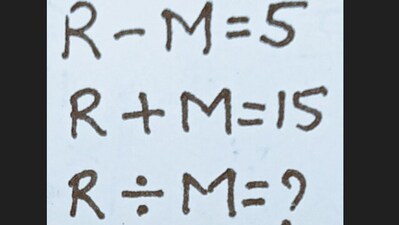 R-M=5
R+M=15
R÷M=?